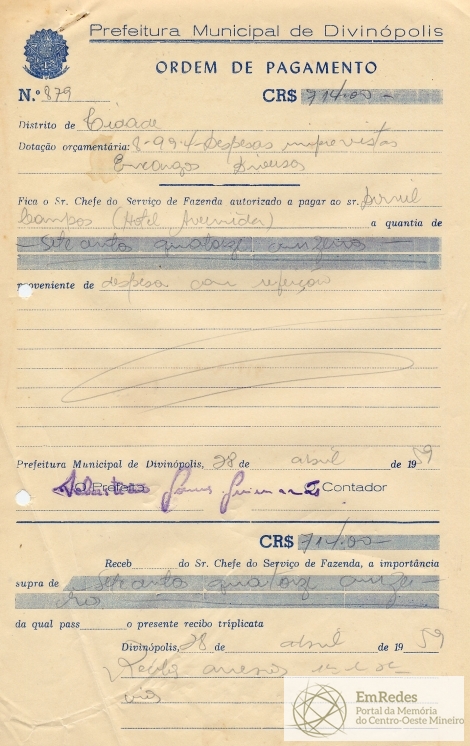 Prefeitura Municipal de Divinópolis
ORDEM DE PAGAMENTO
N.º 879 CR$ 714,00 -
Distrito de Cidade
Dotação orçamentária: 8-99-4 Despesas imprevistas
Encargos diversos
Fica o Sr. Chefe do Serviço de Fazenda autorizado a pagar ao sr.
Campos (Hotel Avenida) a quantia de
- setecentos quatorze cruzeiros -
proveniente de despesa com refeição
Prefeitura Municipal de Divinópolis, 28 de abril de 1959
O Prefeito O Contador
CR$ 714,00 -
Receb do Sr. Chefe do Serviço de Fazenda, a importância
supra de setecentos quatorze cruzei-
ros
da qual pass o presente recibo triplicata
Divinópolis, 28 de abril de 1959
Recibo anexo
EmRedes
Portal da Memória
do Centro-Oeste Mineiro